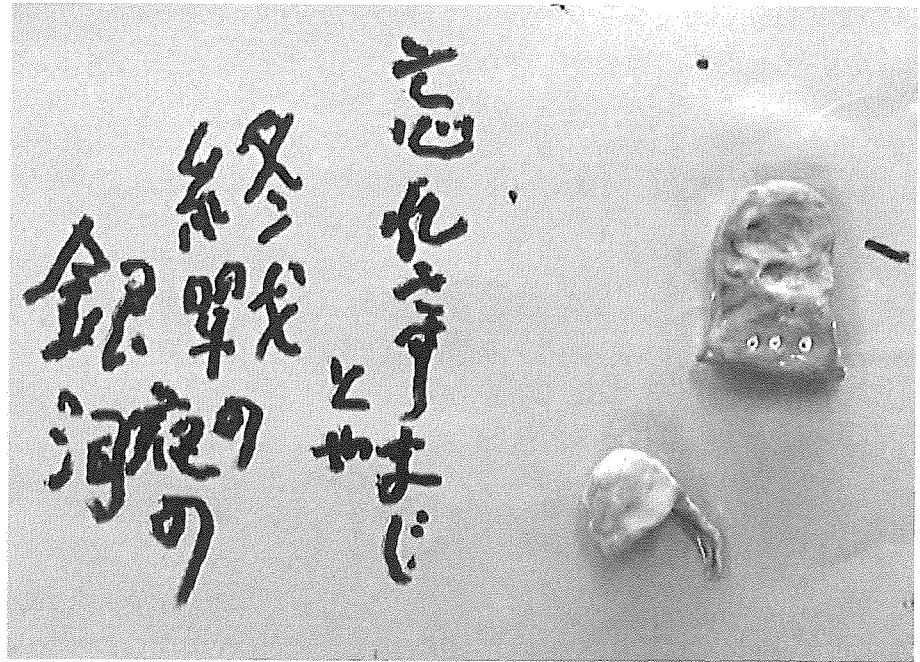 忘れさすまじ
とや
終戰の
夜の
銀河